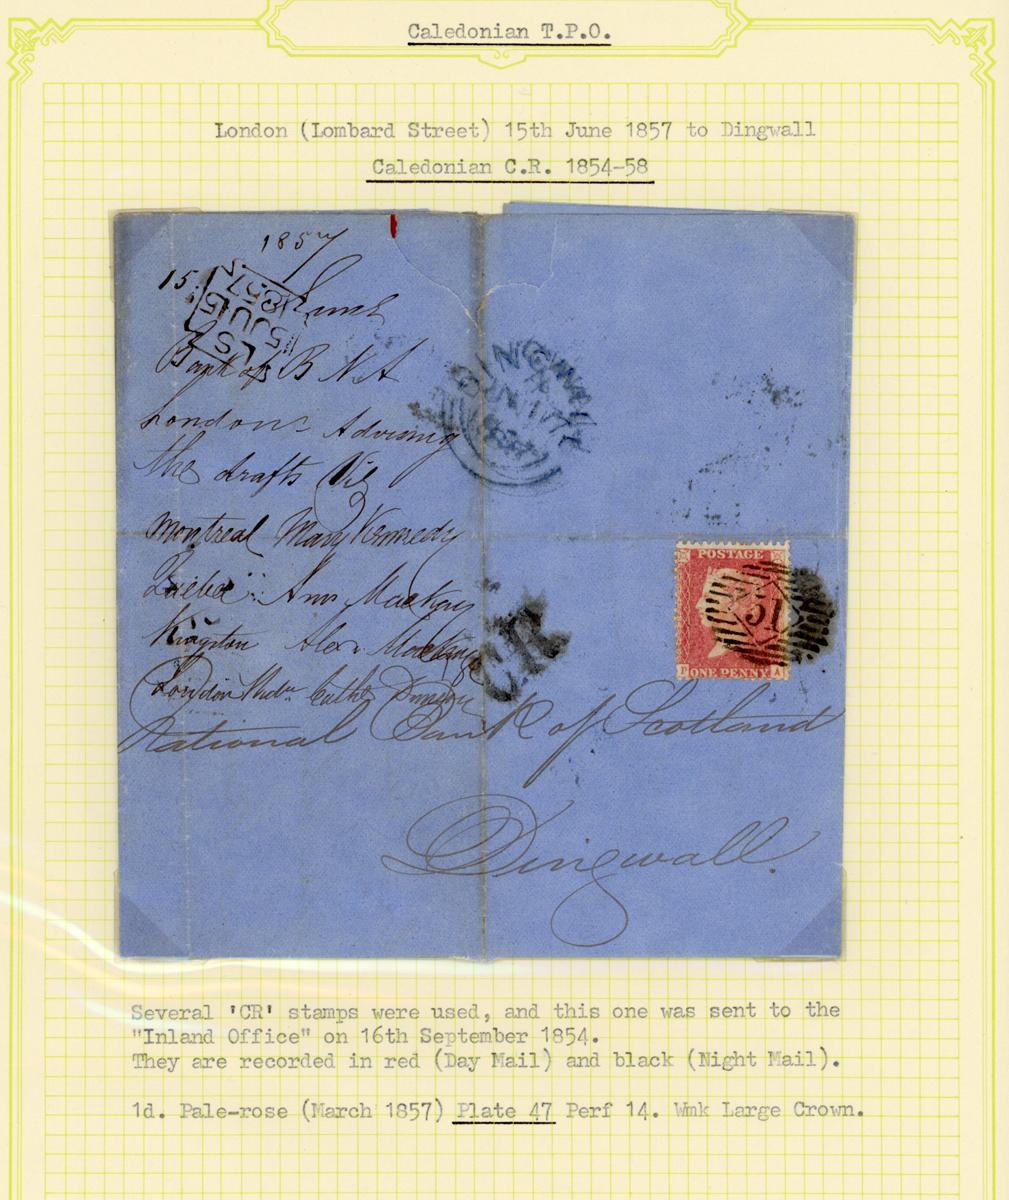 Caledonian T.P.O.
London (Lombard Street) 15th June 1857 to Dingwall
Caledonian C.R. 1854-58
1857
15 June
LS
15 JU 15
1857
Bank of B N A
London - Advising
the drafts Viz
Montreal Mary Kennedy
Quebec Ann MacKay
Kingston Alexr MacKay
London
DINGWALL
JUN 17
1857
CR
POSTAGE
51
ONE PENNY
A
National Bank of Scotland
Dingwall
Several 'CR' stamps were used, and this one was sent to the
"Inland Office" on 16th September 1854.
They are recorded in red (Day Mail) and black (Night Mail).
1d. Pale-rose (March 1857) Plate 47 Perf 14. Wmk Large Crown.